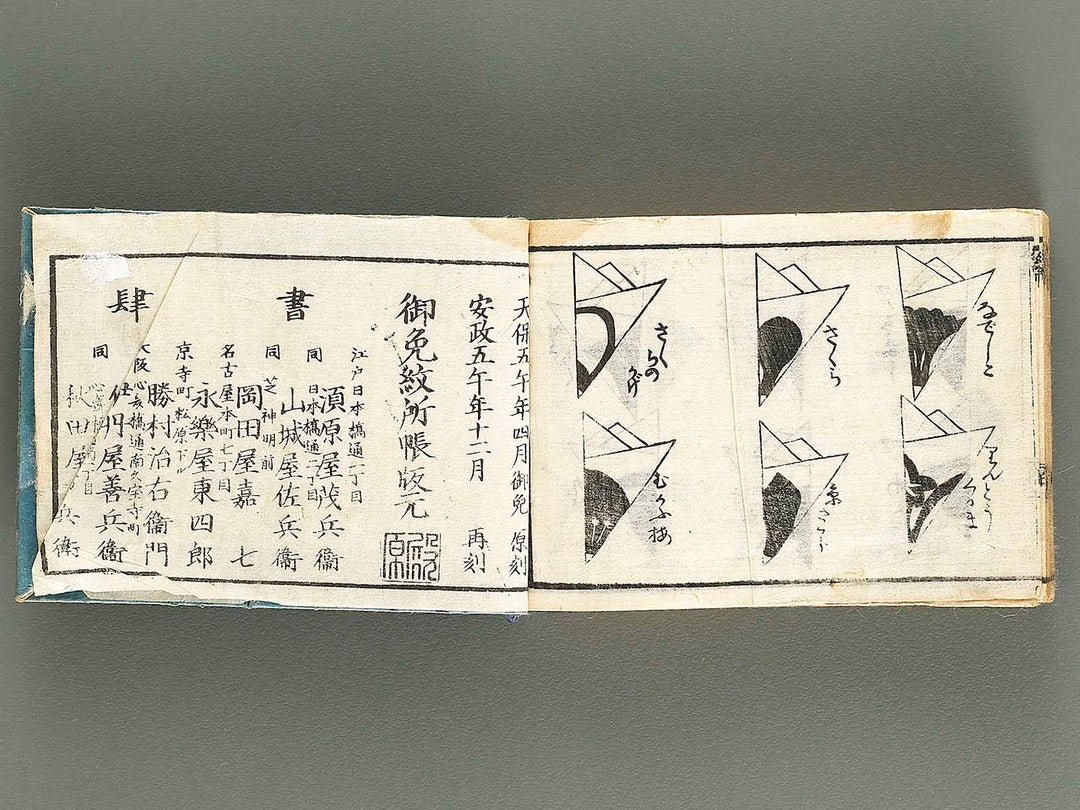 なでしこ
りんとう
くるま
さくら
さくらの
かげ
むかふ梅
天保五午年四月御免 原刻
安政五午年十二月 再刻
御免紋所帳版元
書
肆
江戸日本橋通一丁目
須原屋茂兵衞
同 日本橋通二丁目
山城屋佐兵衞
同 芝神明前
岡田屋嘉七
名古屋本町七丁目
永樂屋東四郎
京寺町松原下ル
勝村治右衞門
大阪心斎橋通南久宝寺町
伊丹屋善兵衞
同
田屋 兵衞